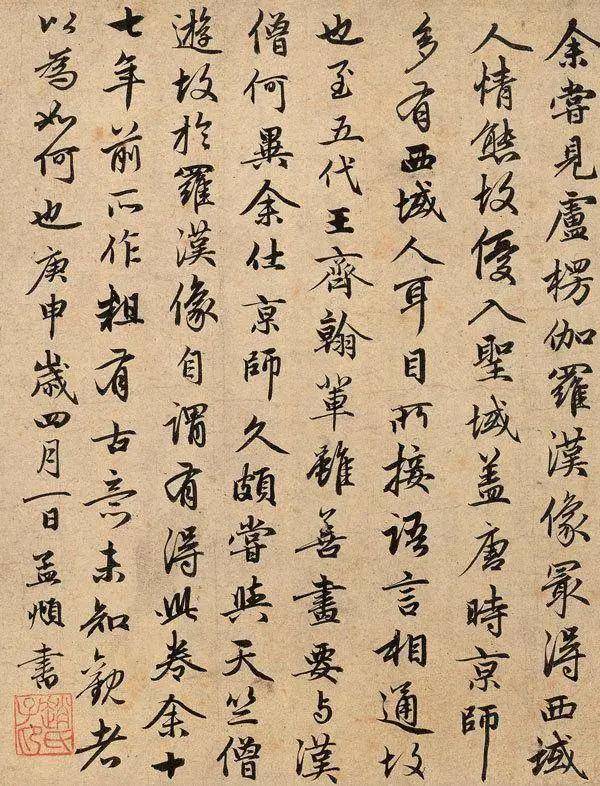 余嘗見盧楞伽羅漢像最得西域
人情態故優入聖域蓋唐時京師
多有西域人耳目所接語言相通故
也至五代王齊翰軰雖善畫要与漢
僧何異余仕京師久頗嘗與天竺僧
遊故於羅漢像自謂有得此卷余十
七年前所作粗有古意未知觀者
以為如何也庚申歲四月一日孟頫書
趙氏子昂